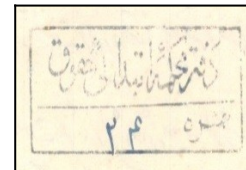 دفتر محكمهٔ ابتدائی حقوق
نمره ۳۴